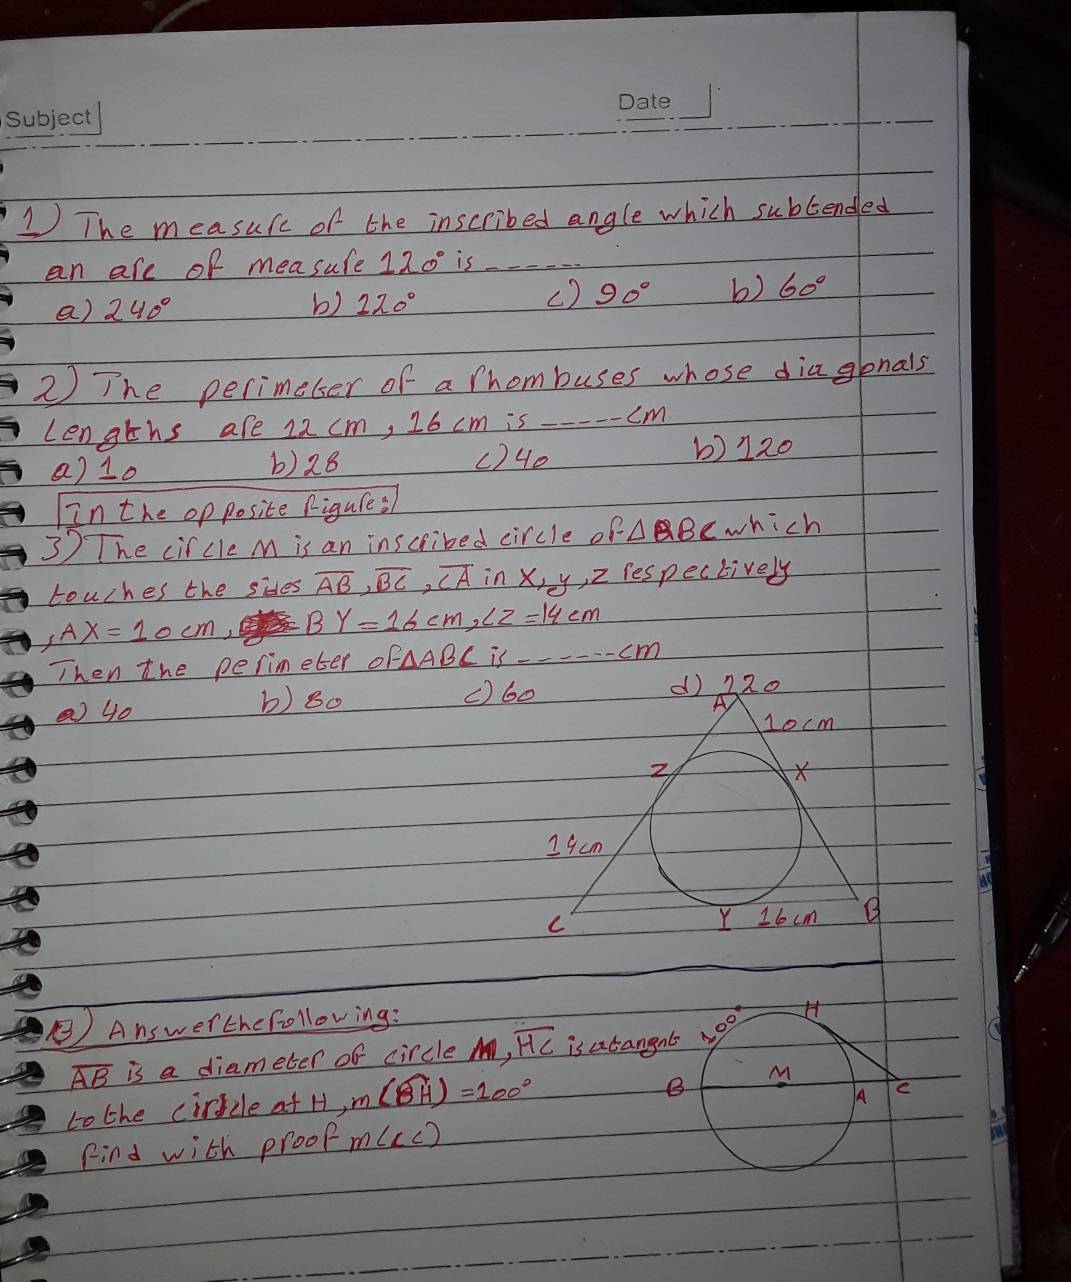 Subject
Date
1) The measure of the inscribed angle which subtended
an arc of measure 120° is ------
a) 240° b) 120° c) 90° b) 60°
2) The perimeter of a rhombuses whose diagonals
Lengths are 12 cm, 16 cm is ----- cm
a) 10 b) 28 c) 40 b) 120
in the opposite figure:
3) The circle M is an inscribed circle of ΔABC which
touches the sides AB, BC, CA in X, y, Z respectively
, AX = 10 cm, BY = 16 cm, CZ = 14 cm
Then the perimeter of ΔABC is ------ cm
a) 40 b) 80 c) 60 d) 120
A
10 cm
Z X
14 cm
C Y 16 cm B
B) Answer the following:
AB is a diameter of circle M, HC is a tangnt
to the circle at H, m(BH) = 100°
find with proof m(<C)
100° H
B M A C